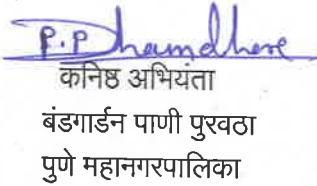 P.P Dhamdhere
कनिष्ठ अभियंता
बंडगार्डन पाणी पुरवठा
पुणे महानगरपालिका